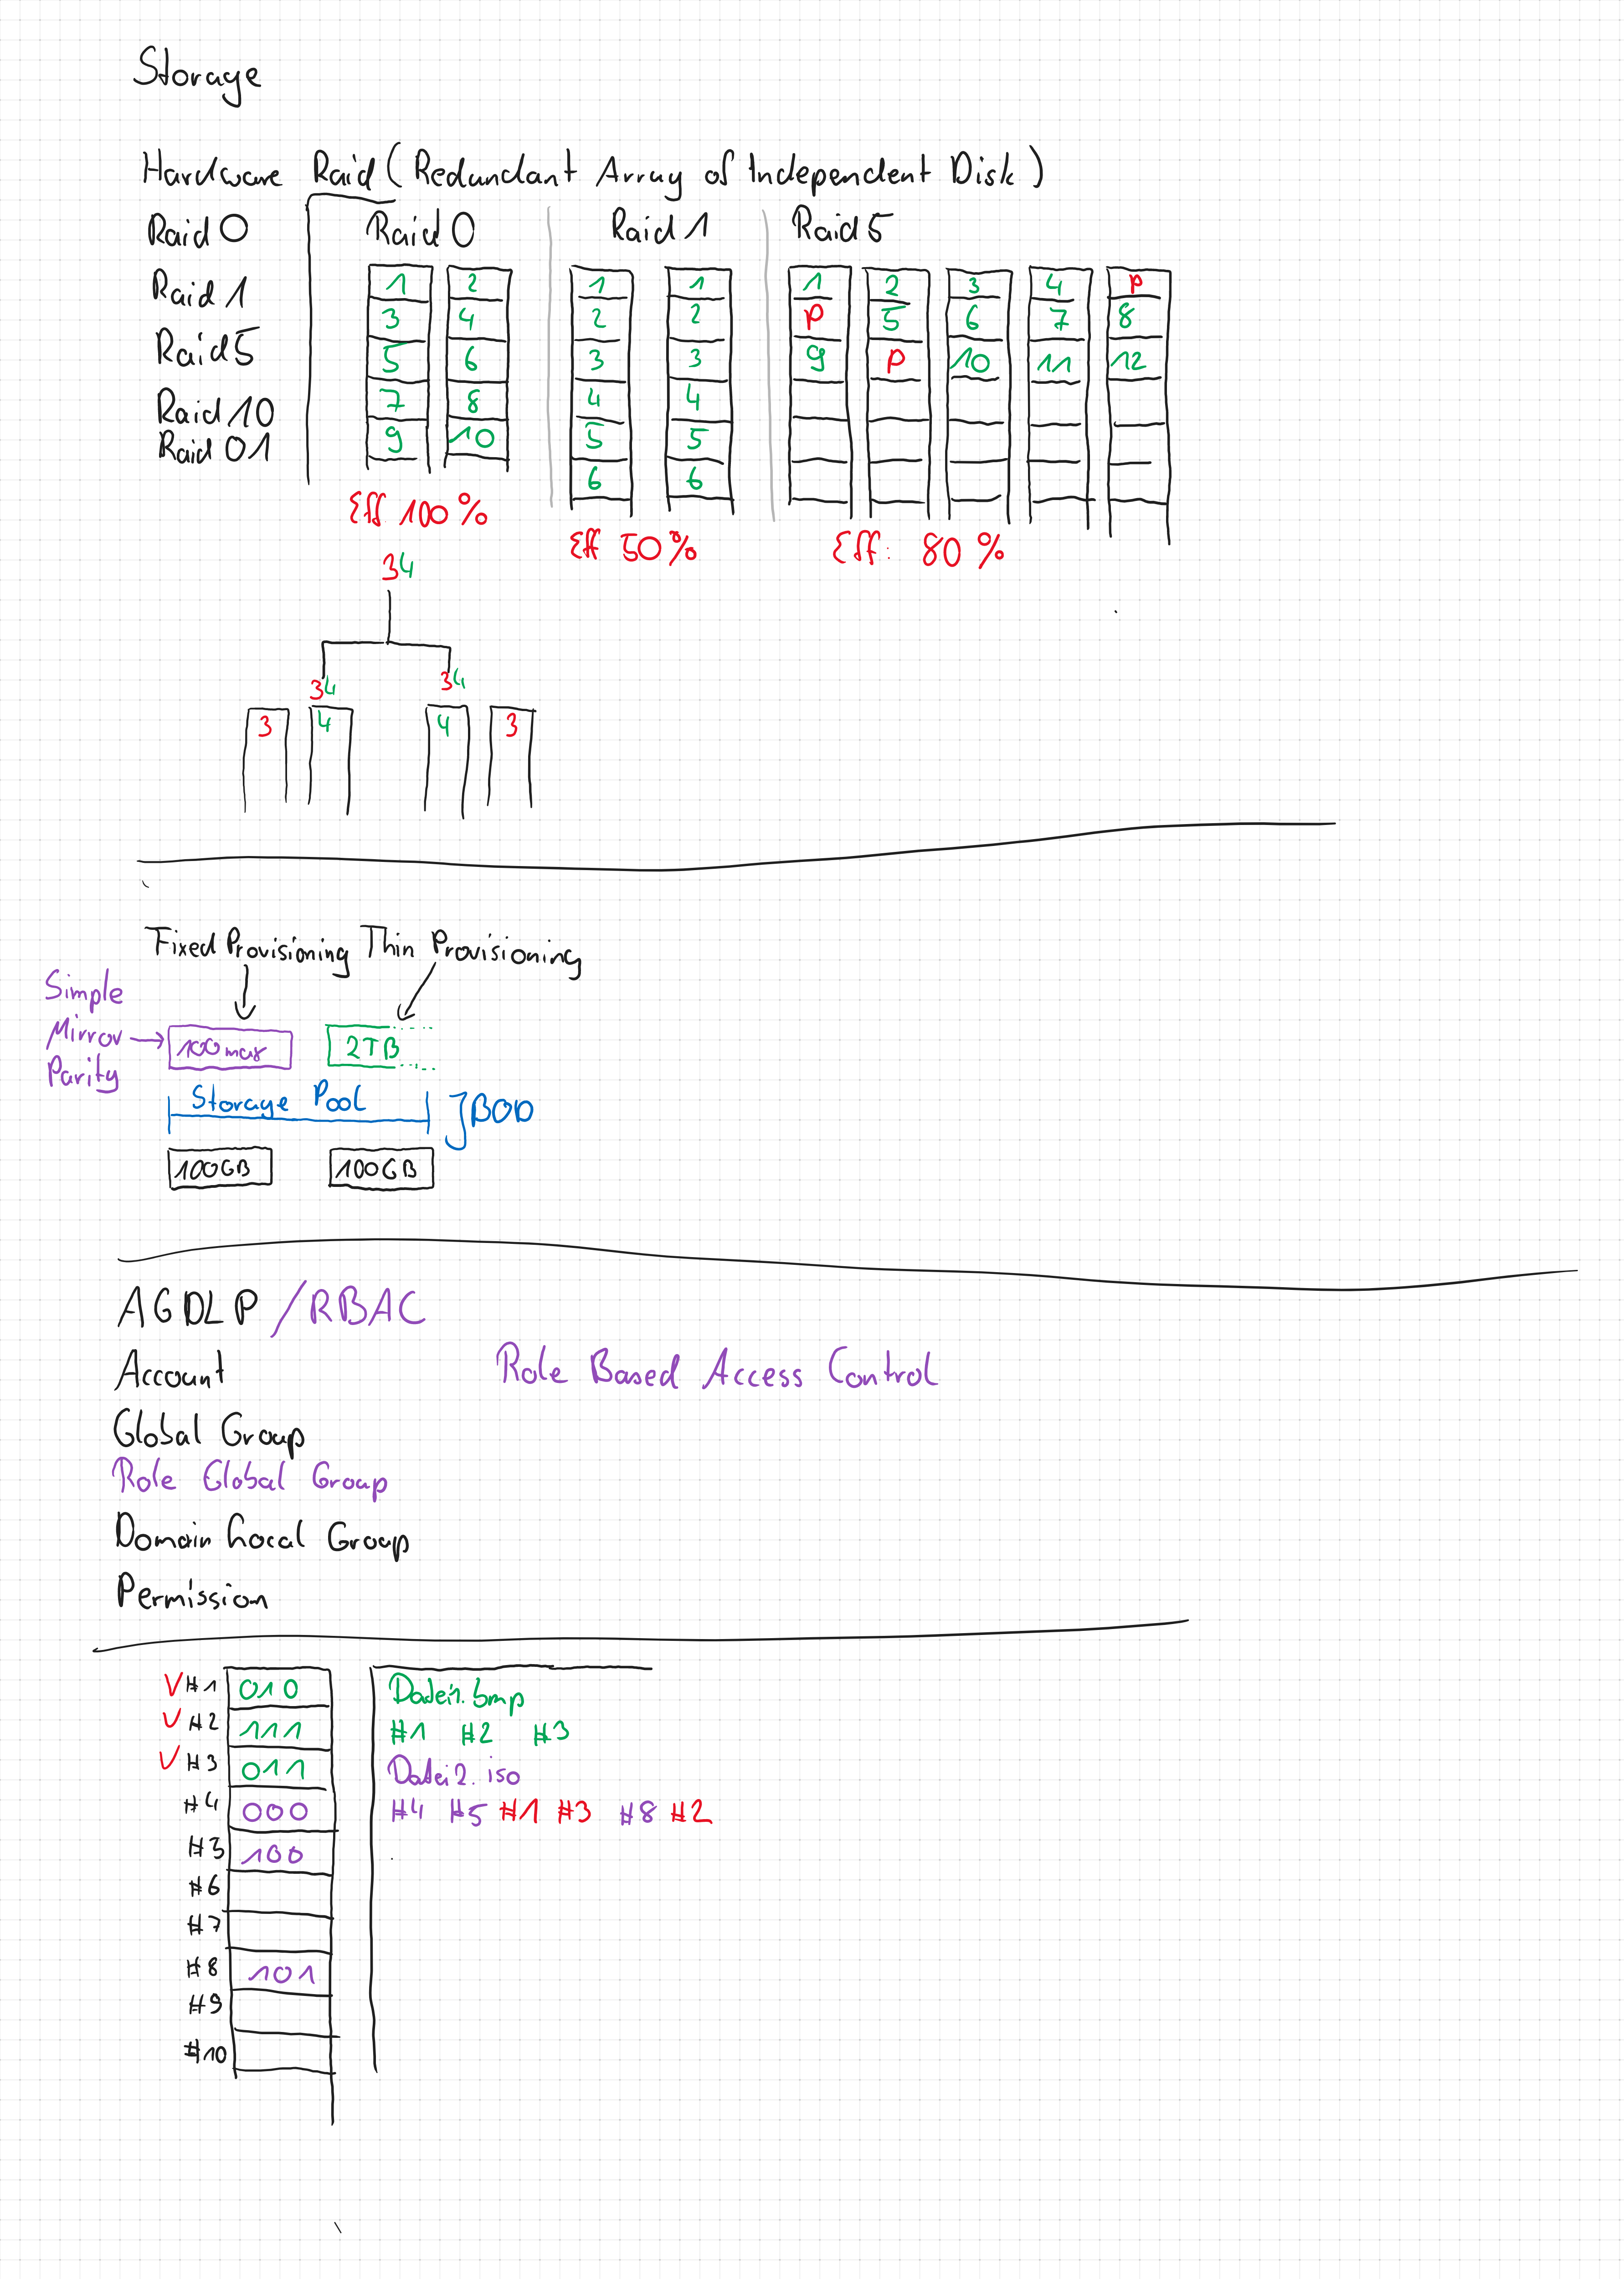 Storage
Hardware Raid (Redundant Array of Independent Disk)
Raid 0 Raid 0 Raid 1 Raid 5
Raid 1
Raid 5
Raid 10
Raid 01
1 2
3 4
5 6
7 8
9 10
Eff 100 %
1 1
2 2
3 3
4 4
5 5
6 6
Eff 50 %
1 2 3 4 P
P 5 6 7 8
9 P 10 11 12
Eff: 80 %
34
34 34
3 4 4 3
Fixed Provisioning Thin Provisioning
Simple
Mirror
Parity
100 max 2TB
Storage Pool JBOD
100GB 100GB
AGDLP / RBAC
Account Role Based Access Control
Global Group
Role Global Group
Domain Local Group
Permission
V #1 010
V #2 111
V #3 011
#4 000
#3 100
#6
#7
#8 101
#9
#10
Datei1.bmp
#1 #2 #3
Datei2.iso
#4 #5 #1 #3 #8 #2